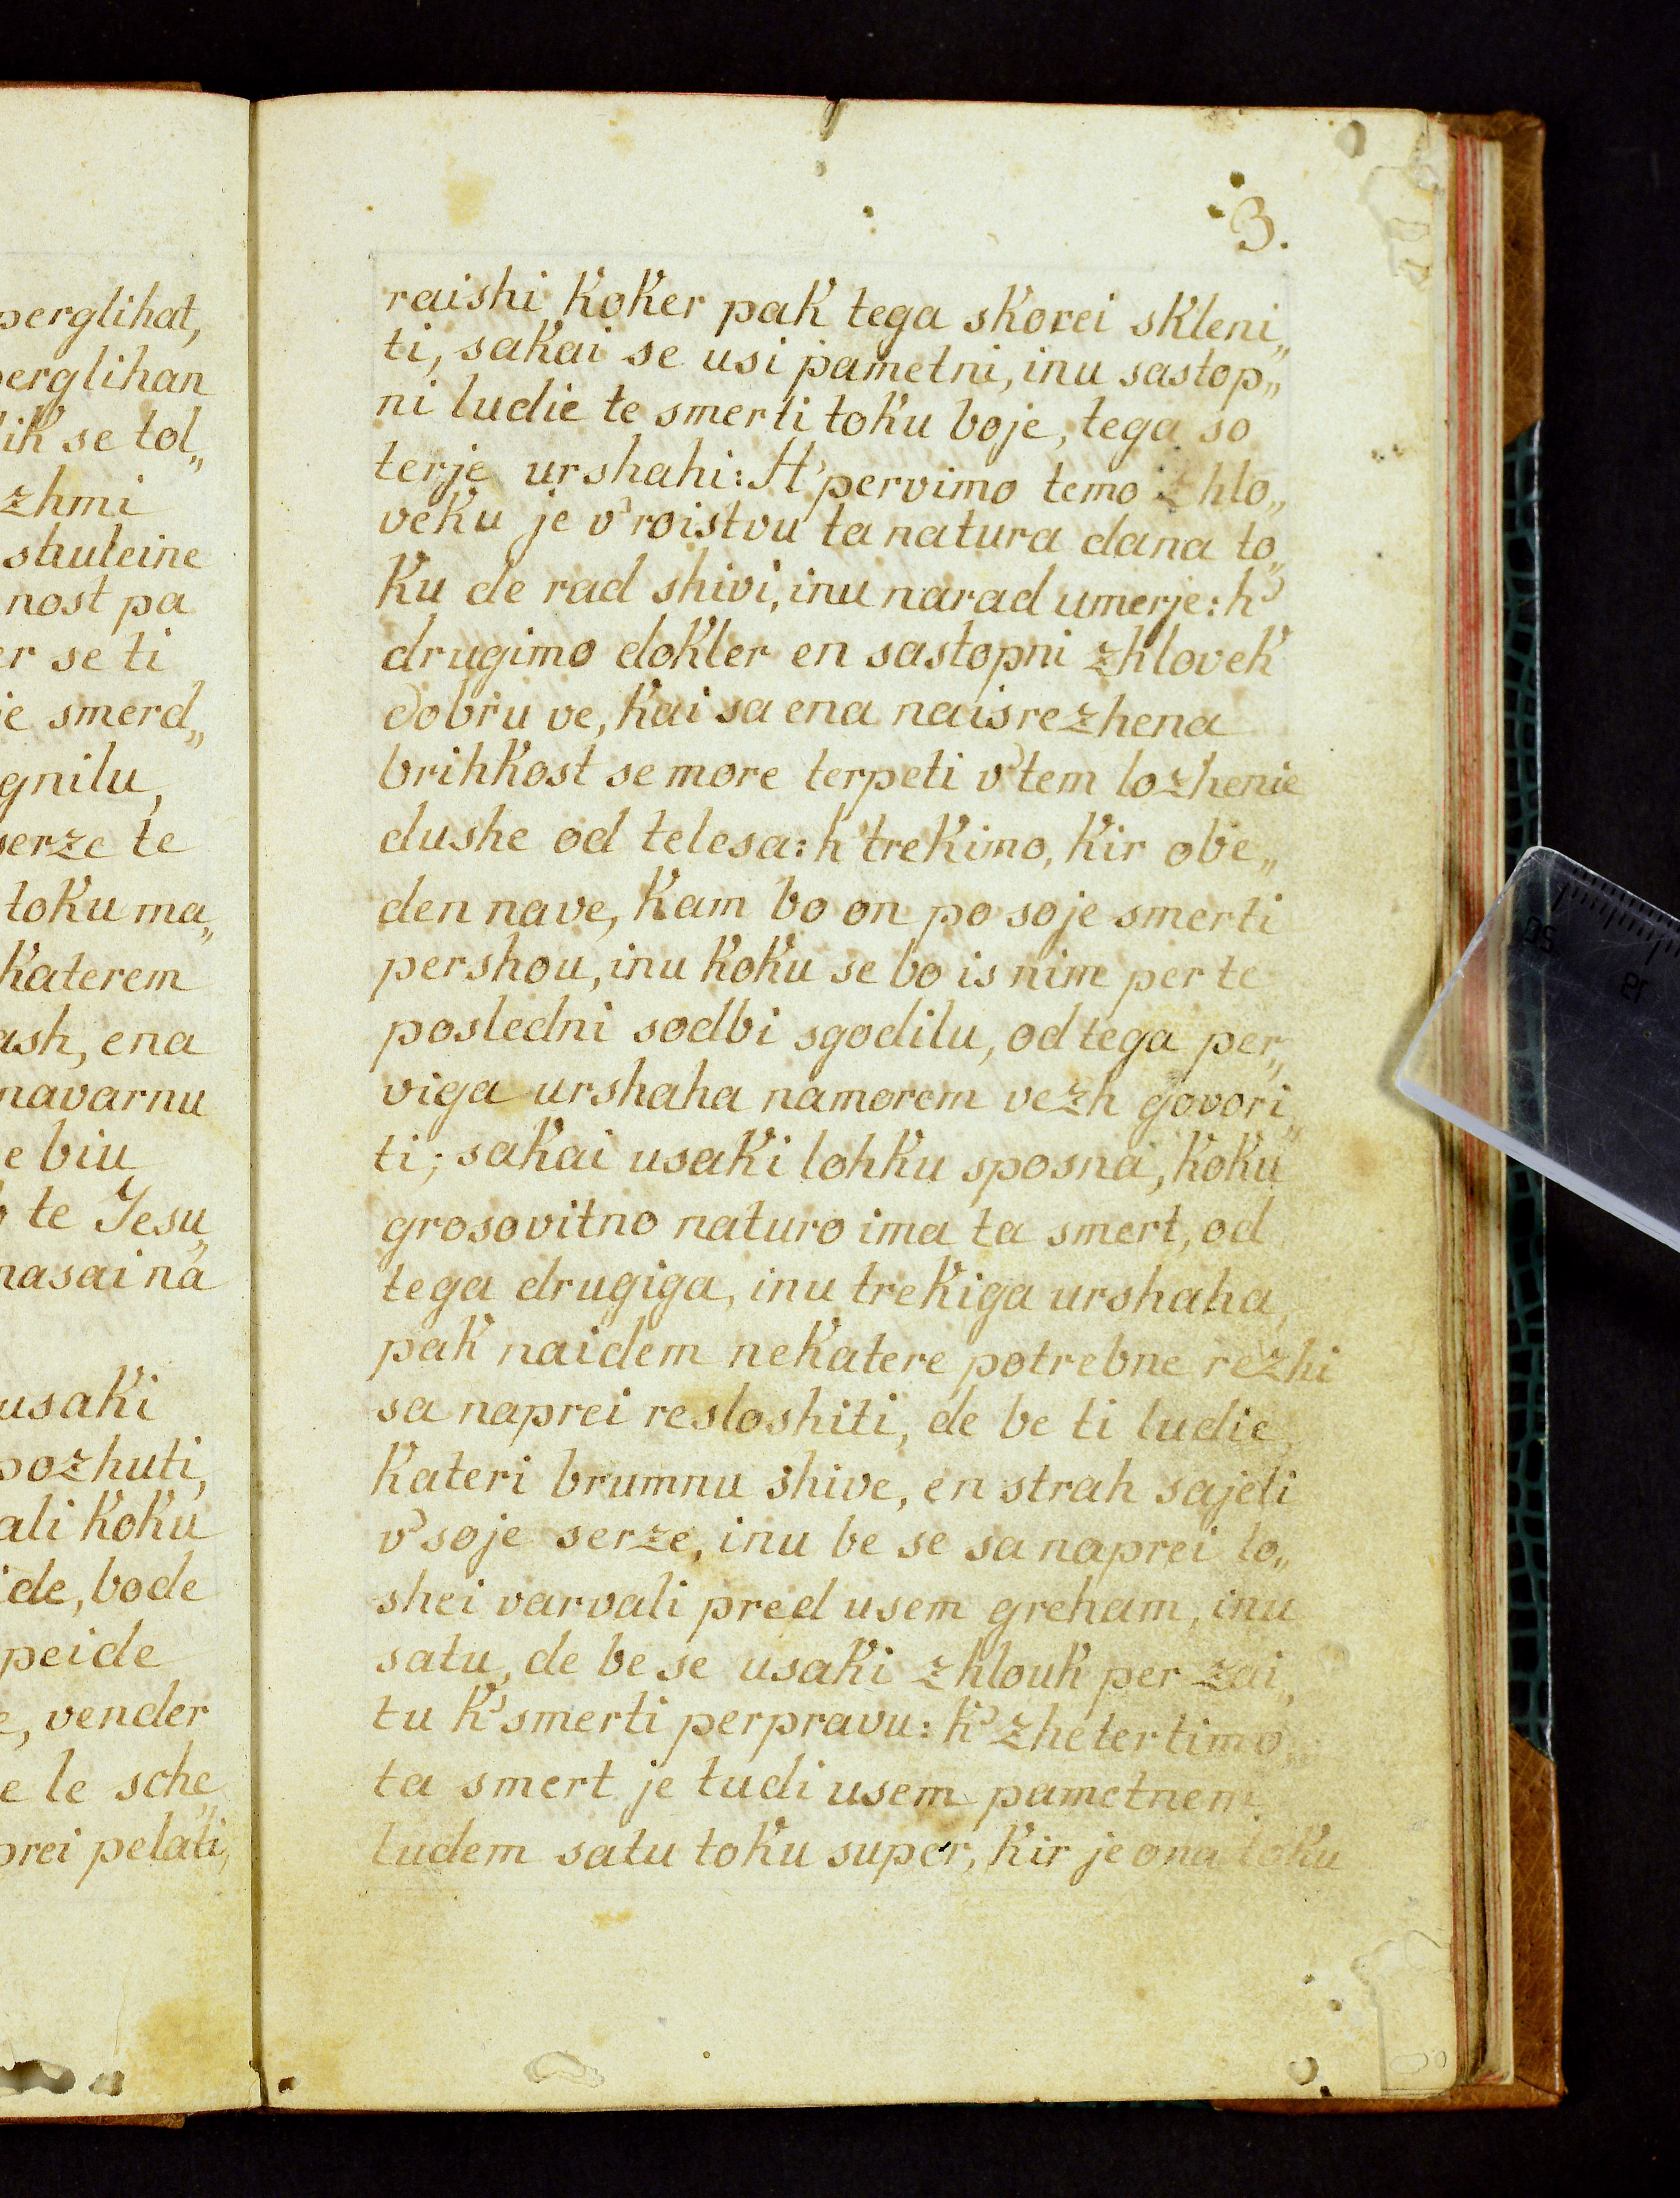 perglihat,
perglihan
lik se tol„
zhmi
shuleine
nost pa
er se ti
je smerd„
gnilu,
serze te
toku ma„
katerem
ash, ena
navarnu
e biu
te Jesu„
nasai na
usaki
pozhuti,
ali koku
ide, bode
peide
e, vender
e le sche„
prei pelati,
3.
raishi koker pak tega skorei skleni„
ti, sakai se usi pametni, inu sastop„
ni ludie te smerti toku boje, tega so
terje urshahi: H' pervimo temo zhlo„
veku je v' roistvu ta natura dana to„
ku de rad shivi, inu narad umerje: h'
drugimo dokler en sastopni zhlovek
dobru ve, kai sa ena naisrezhena
brihkost se more terpeti v' tem lozhenie
dushe od telesa: h' trekimo, kir obe„
den nave, kam bo on po soje smerti
pershou, inu koku se bo is nim per te
posledni sodbi sgodilu, od tega per„
viga urshaha namorem vezh govori„
ti; sakai usaki lohku sposna, koku
grosovitno naturo ima ta smert, od
tega drugiga, inu trekiga urshaha,
pak naidem nekatere potrebne rezhi
sa naprei resloshiti, de be ti ludie,
kateri brumnu shive, en strah sajeli
v' soje serze, inu be se sa naprei lo„
shei varvali pred usem greham, inu
satu, de be se usaki zhlouk per zai„
tu k' smerti perpravu: k' zhetertimo
ta smert je tudi usem pametnem
ludem satu toku super, kir je ona toku